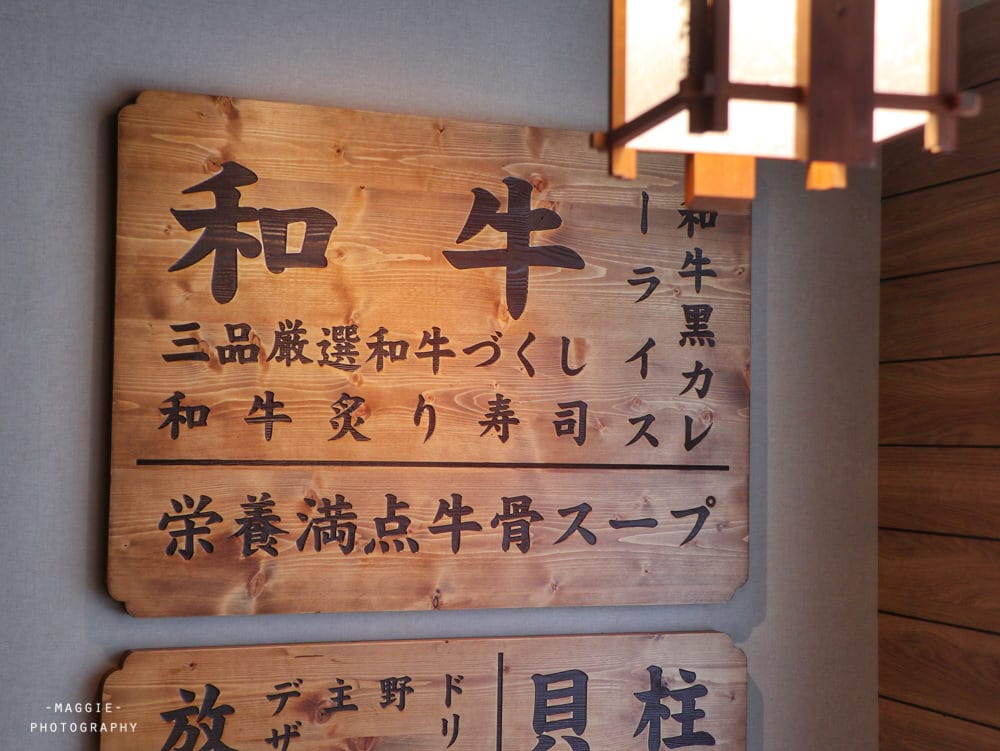 和牛
三品厳選和牛づくし
和牛炙り寿司
和牛黒カレ
ーライス
栄養満点牛骨スープ
貝柱
ドリ
野
主
デザ
放
-MAGGIE-
PHOTOGRAPHY